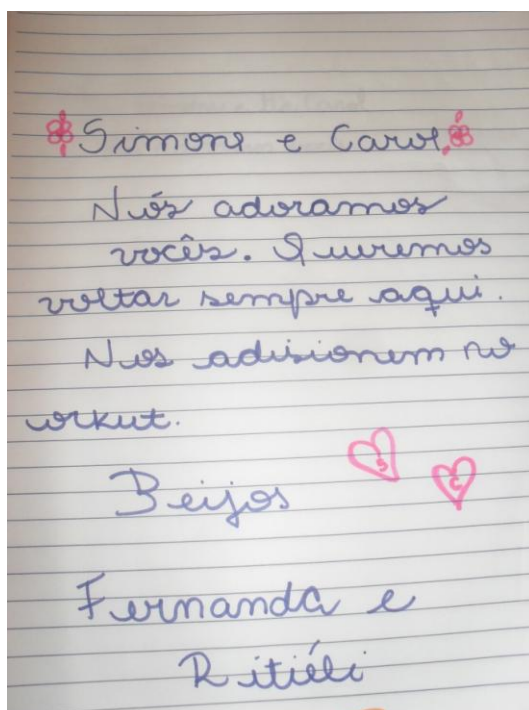 Simone e Carol.
Nós adoramos
vocês. Queremos
voltar sempre aqui.
Nos adisionem no
orkut.
S
C
Beijos
Fernanda e
Ritiéli